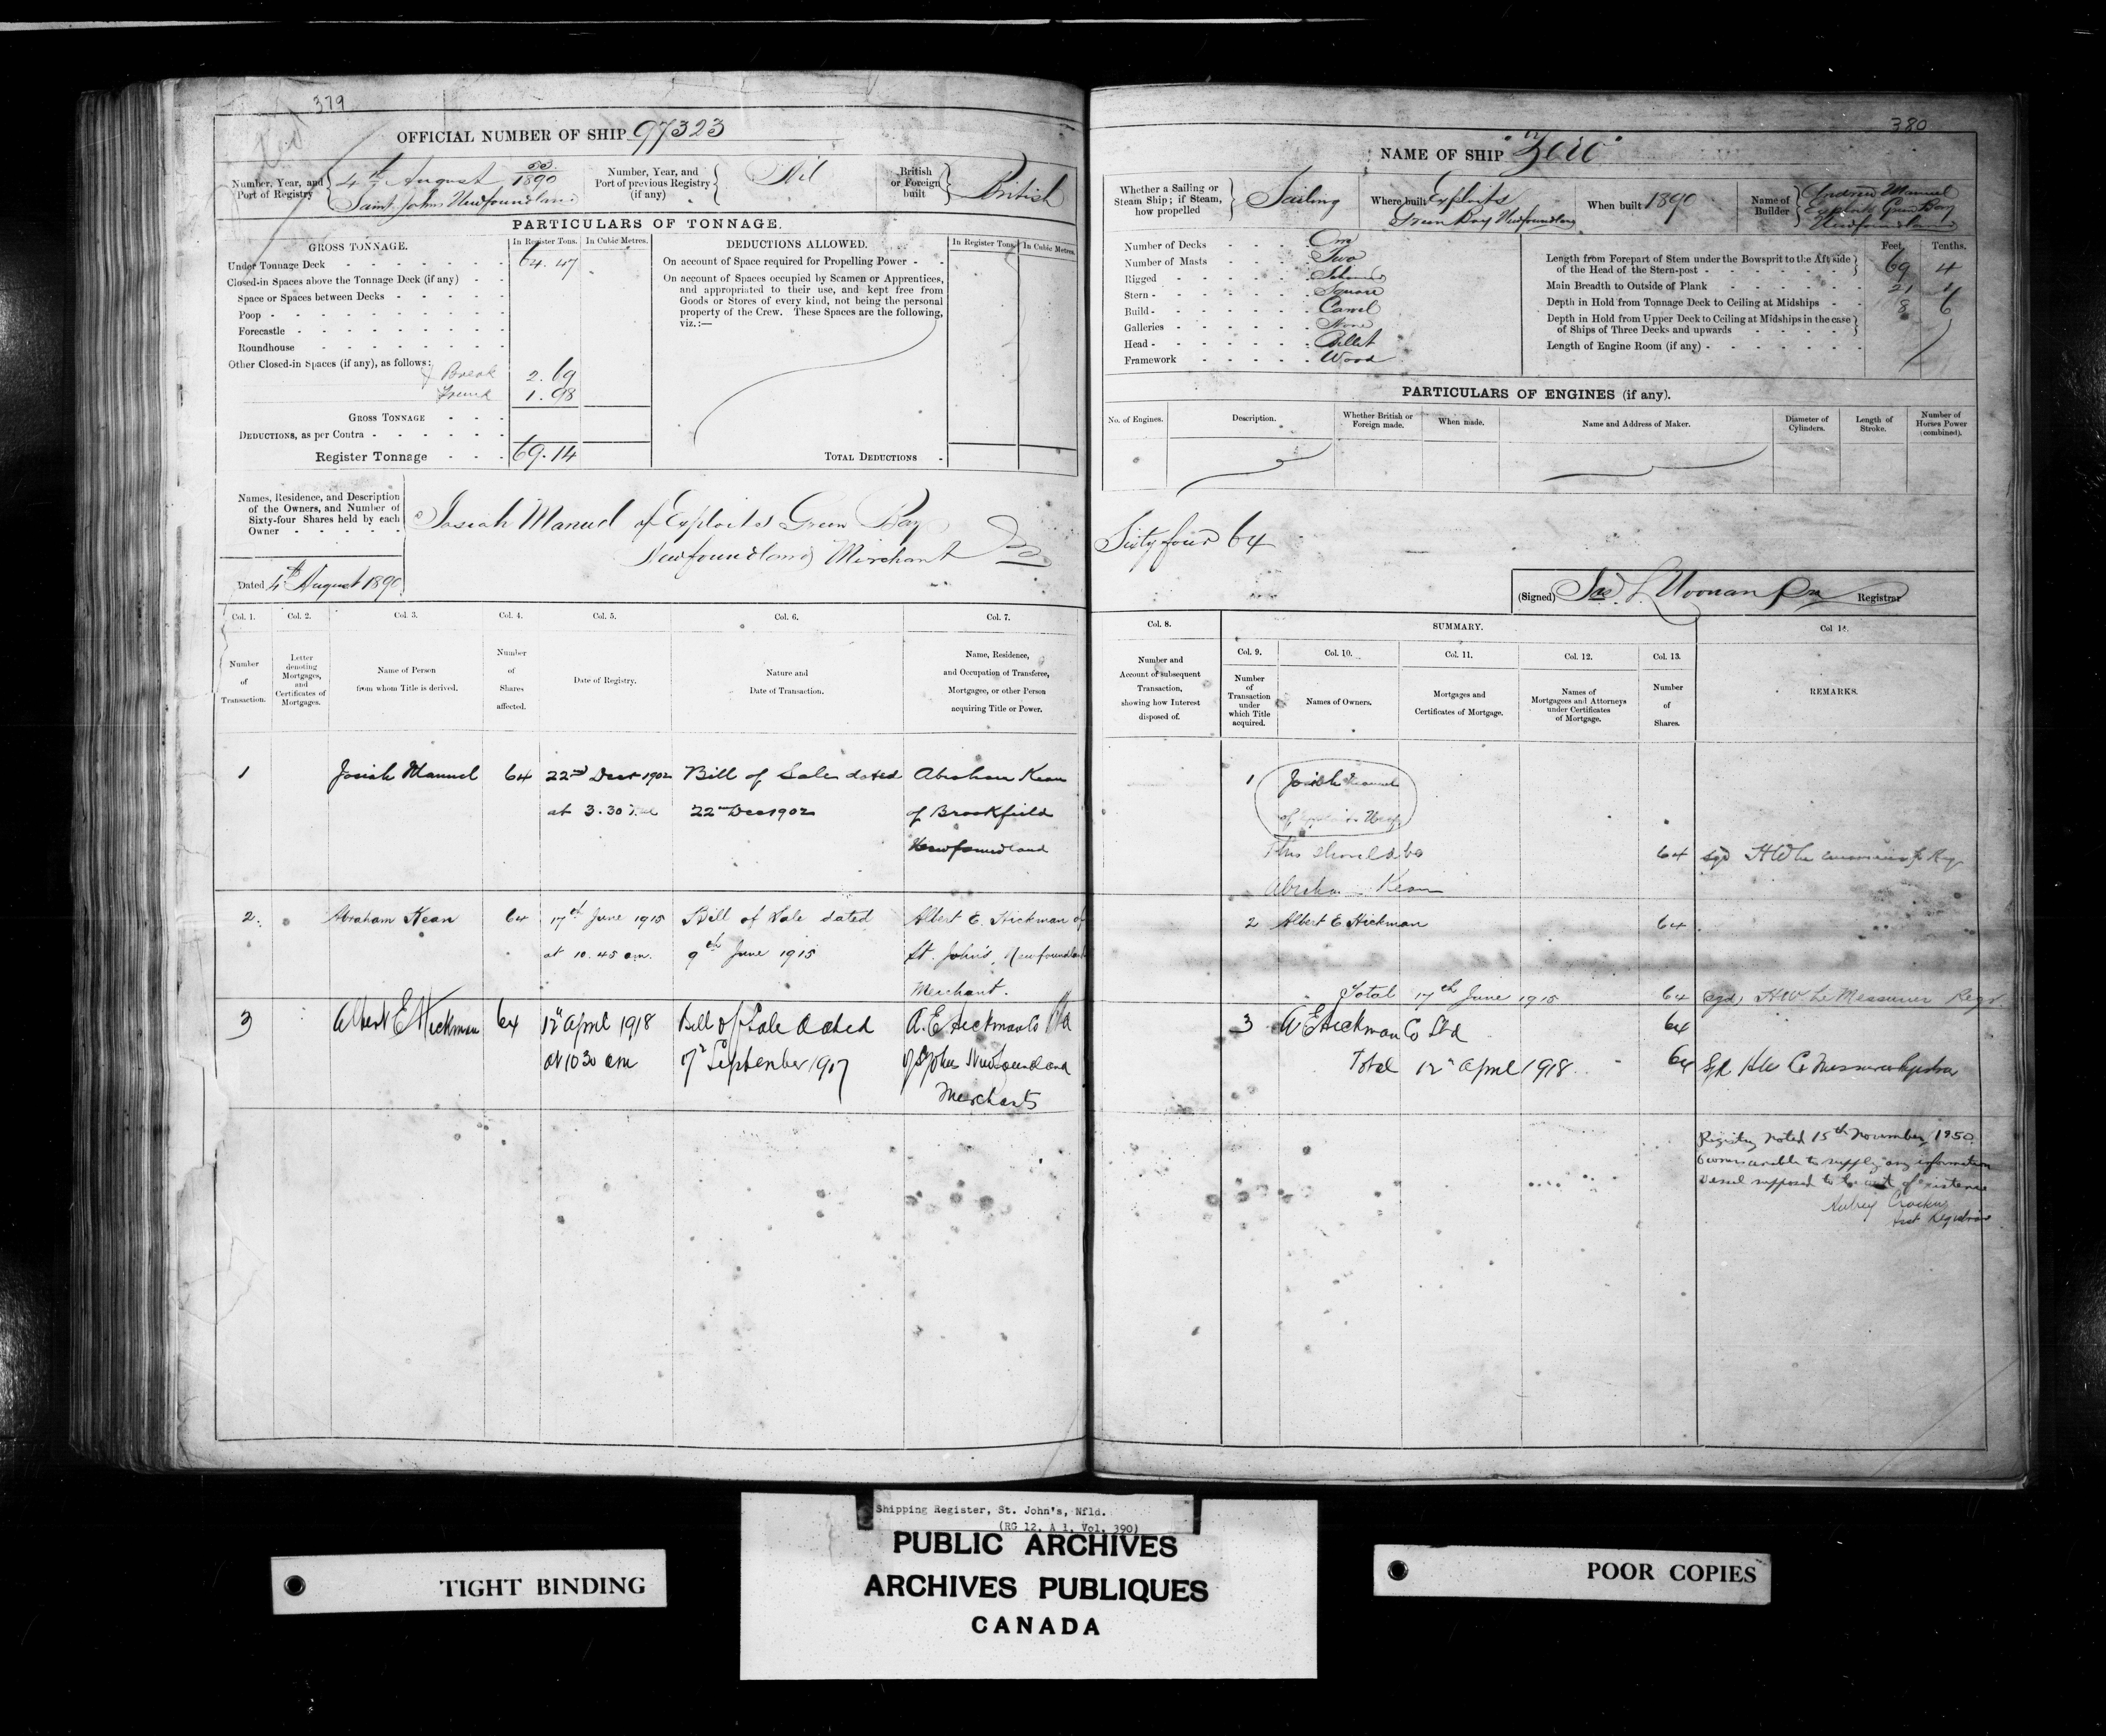 379
OFFICIAL NUMBER OF SHIP 97323
Number, Year, and Port of Registry
4th August 1890
Saint Johns Newfoundland
Number, Year, and Port of previous Registry (if any)
Nil
British or Foreign built
British
PARTICULARS OF TONNAGE.
GROSS TONNAGE.
In Register Tons.
In Cubic Metres.
Under Tonnage Deck 64.47
Closed-in Spaces above the Tonnage Deck (if any)
Space or Spaces between Decks
Poop
Forecastle
Roundhouse
Other Closed-in Spaces (if any), as follows:
Break 2.69
Trunk 1.98
GROSS TONNAGE
DEDUCTIONS, as per Contra
Register Tonnage 69.14
DEDUCTIONS ALLOWED.
In Register Tons.
In Cubic Metres.
On account of Space required for Propelling Power
On account of Spaces occupied by Seamen or Apprentices,
and appropriated to their use, and kept free from
Goods or Stores of every kind, not being the personal
property of the Crew. These Spaces are the following,
viz.:—
TOTAL DEDUCTIONS
Names, Residence, and Description
of the Owners, and Number of
Sixty-four Shares held by each
Owner
Josiah Manuel of Exploits Green Bay
Newfoundland Merchant
Dated 4th August 1890
Col. 1. Col. 2. Col. 3. Col. 4. Col. 5. Col. 6. Col. 7.
Number of Transaction.
Letter denoting Mortgages, and Certificates of Mortgages.
Name of Person from whom Title is derived.
Number of Shares affected.
Date of Registry.
Nature and Date of Transaction.
Name, Residence, and Occupation of Transferee, Mortgagee, or other Person acquiring Title or Power.
1 Josiah Manuel 64 22nd Decr 1902 Bill of Sale dated Abraham Kean
at 3.30 22nd Dec 1902 of Brookfield
Newfoundland
2. Abraham Kean 64 17th June 1915 Bill of Sale dated Albert E. Hickman of
at 10.45 am. 9th June 1915 St. John's, Newfoundland
Merchant.
3 Albert E Hickman 64 12th April 1918 Bill of Sale dated A. E Hickman Co Ltd
at 10 30 am 17th September 1917 of St Johns Newfoundland
Merchants
380
NAME OF SHIP "Zero"
Whether a Sailing or Steam Ship; if Steam, how propelled
Sailing
Where built Exploits
Green Bay Newfoundland
When built 1890
Name of Builder
Andrew Manuel
Exploits Green Bay
Newfoundland
Number of Decks One
Number of Masts Two
Rigged Schooner
Stern Square
Build Carvel
Galleries None
Head Billet
Framework Wood
Feet. Tenths.
Length from Forepart of Stem under the Bowsprit to the Aft side
of the Head of the Stern-post 69 4
Main Breadth to Outside of Plank 21
Depth in Hold from Tonnage Deck to Ceiling at Midships 8 6
Depth in Hold from Upper Deck to Ceiling at Midships in the case
of Ships of Three Decks and upwards
Length of Engine Room (if any)
PARTICULARS OF ENGINES (if any).
No. of Engines.
Description.
Whether British or Foreign made.
When made.
Name and Address of Maker.
Diameter of Cylinders.
Length of Stroke.
Number of Horses Power (combined).
Sixty four 64
(Signed) Registrar
Col. 8.
SUMMARY.
Col 14.
Col. 9. Col. 10. Col. 11. Col. 12. Col. 13.
Number and Account of subsequent Transaction, showing how Interest disposed of.
Number of Transaction under which Title acquired.
Names of Owners.
Mortgages and Certificates of Mortgage.
Names of Mortgagees and Attorneys under Certificates of Mortgage.
Number of Shares.
REMARKS.
1 Josiah Manuel
This should be 64 sgd H W Le Messurier Regr
Abraham Kean
2 Albert E Hickman 64
Total 17th June 1915 64 sgd, H W. Le Messurier Regr
3 A E Hickman Co Ltd 64
Total 12th April 1918 64 Sgd H W Le Messurier Registrar
Registry noted 15th November 1950.
Owners unable to supply any information
Vessel supposed to be out of existence
Aubrey Crocker
Asst Registrar
Shipping Register, St. John's, Nfld.
(RG 12, A 1, Vol. 390)
PUBLIC ARCHIVES
ARCHIVES PUBLIQUES
CANADA
TIGHT BINDING
POOR COPIES